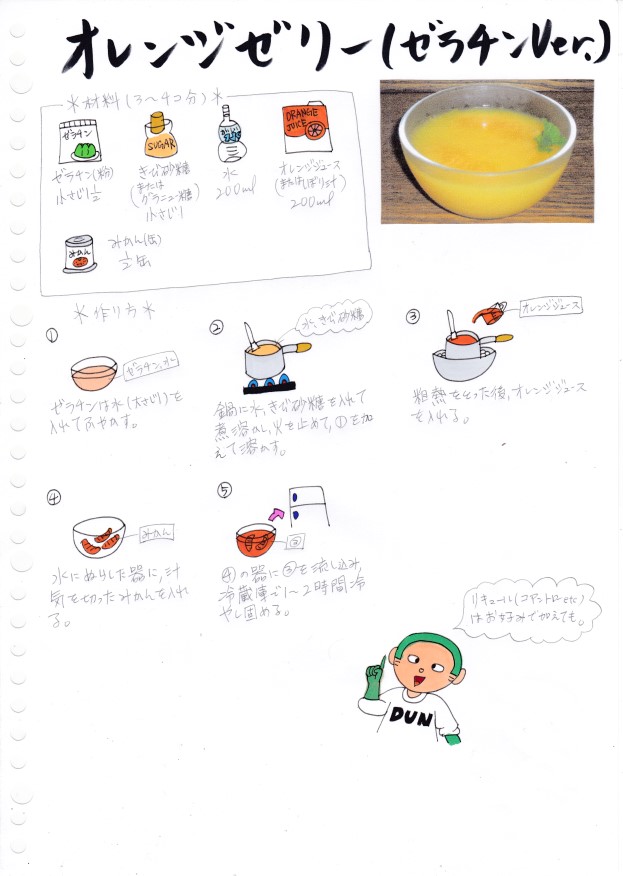 オレンジゼリー(ゼラチンVer.)
*材料(3〜4コ分)*
ゼラチン
ゼラチン(粉)
小さじ1 1/2
SUGAR
きび砂糖
(または
グラニュー糖)
小さじ1
水
200ml
ORANGE
JUICE
オレンジジュース
(またはしぼり汁)
200ml
みかん
みかん(缶)
1/2缶
*作り方*
①
ゼラチン、水
ゼラチンは水(大さじ1)を
入れてふやかす。
②
水、きび砂糖
鍋に水、きび砂糖を入れて
煮溶かし、火を止めて、①を加
えて溶かす。
③
オレンジジュース
粗熱をとった後、オレンジジュース
を入れる。
④
みかん
水にぬらした器に、汁
気を切ったみかんを入れ
る。
⑤
③
④の器に③を流し込み、
冷蔵庫で1〜2時間冷
やし固める。
リキュール(コアントローetc)
はお好みで加えても。
DUN